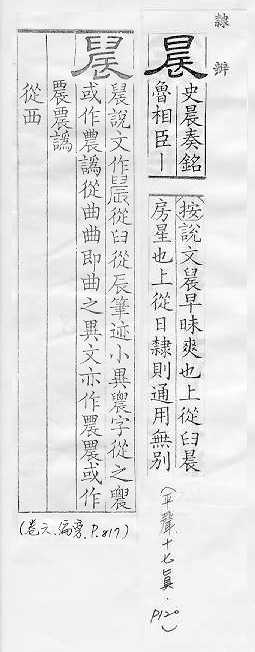 隸辨
晨
史晨奏銘
魯相臣丨
按說文䢅早昧爽也上從臼晨
房星也上從日隸則通用無別
(平聲十七真.P120)
䢅
䢅說文作䢅從臼從辰筆迹小異農字從之
或作農譌從曲曲即曲之異文亦作農或作
譌
從西
(卷六.偏旁.P.817)